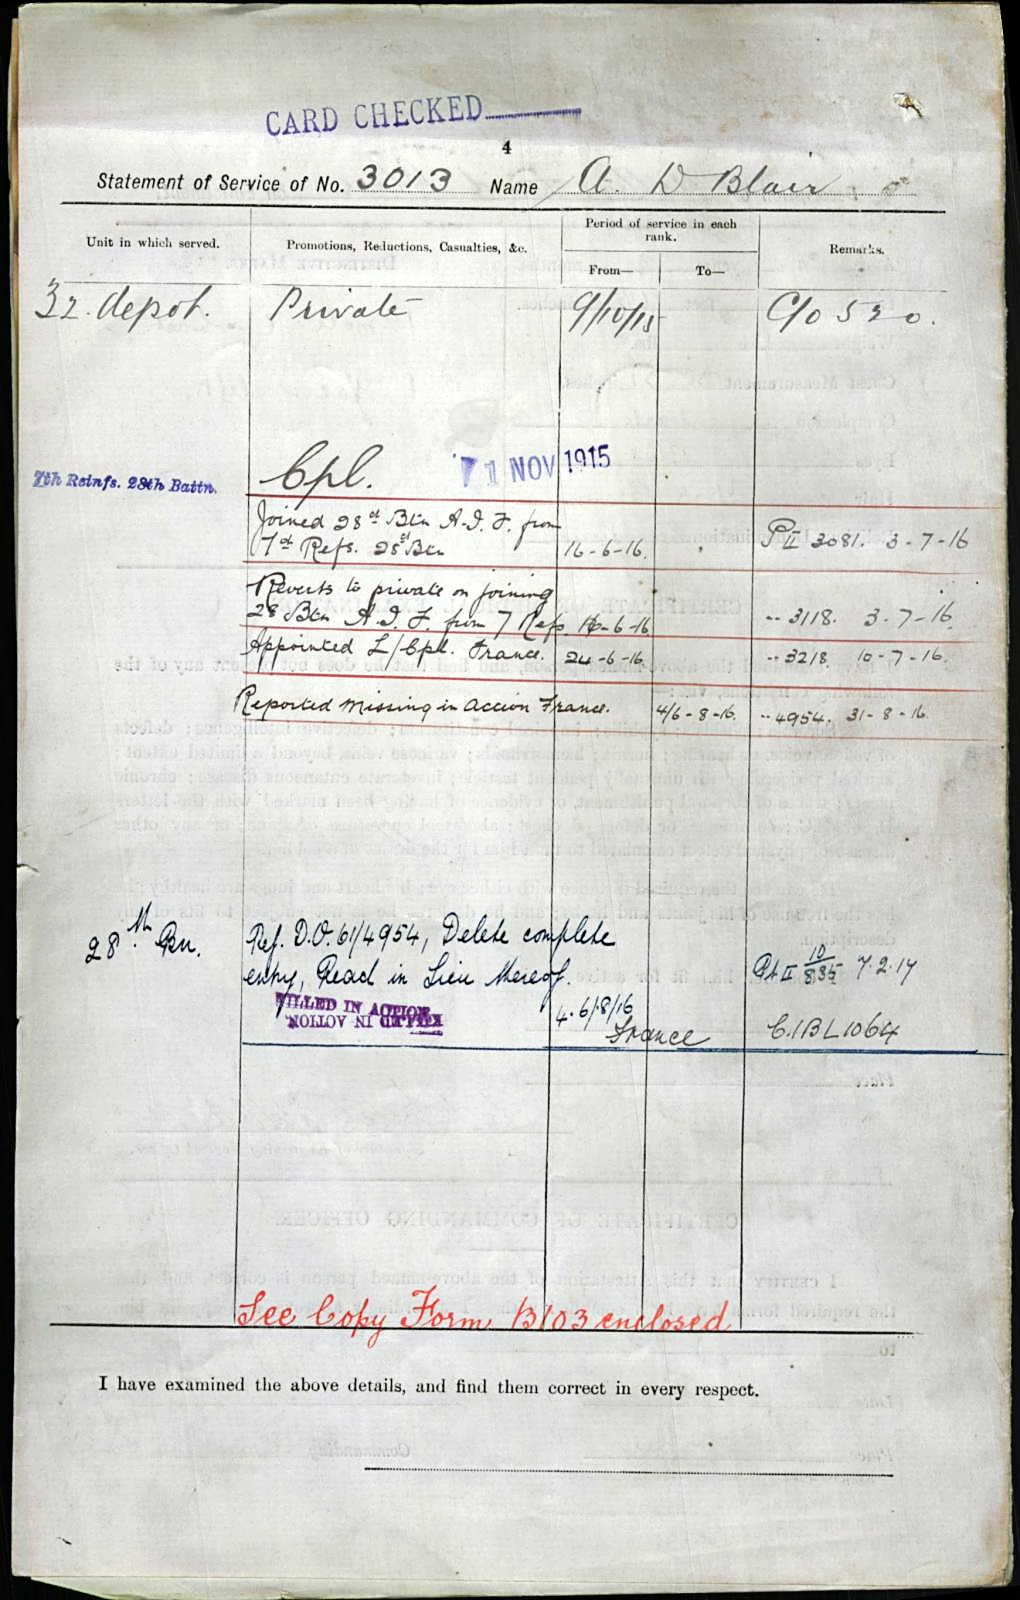 CARD CHECKED
4
Statement of Service of No. 3013 Name A. D Blair
Unit in which served.
Promotions, Reductions, Casualties, &c.
Period of service in each rank.
From—
To—
Remarks.
32. depot. Private 9/10/15 C/o 520.
7th Reinfs. 28th Battn. Cpl. 1 NOV 1915
Joined 28th Btn A.I.F. from
7th Refs. 28th Btn 16-6-16. P II 3081. 3-7-16
Reverts to private on joining
28 Btn A.I.F. from 7 Refs 16-6-16 " 3118. 3-7-16.
Appointed L/Cpl. France. 24-6-16. " 3218. 10-7-16.
Reported Missing in Action France. 4/6-8-16. " 4954. 31-8-16
28th Bn. Ref. D.O. 61/4954, Delete complete
entry, Read in lieu thereof. Pt II 10/835 7.2.17
KILLED IN ACTION 4.6/8/16
KILLED IN ACTION France C.I.B L1064
See Copy Form B103 enclosed
I have examined the above details, and find them correct in every respect.